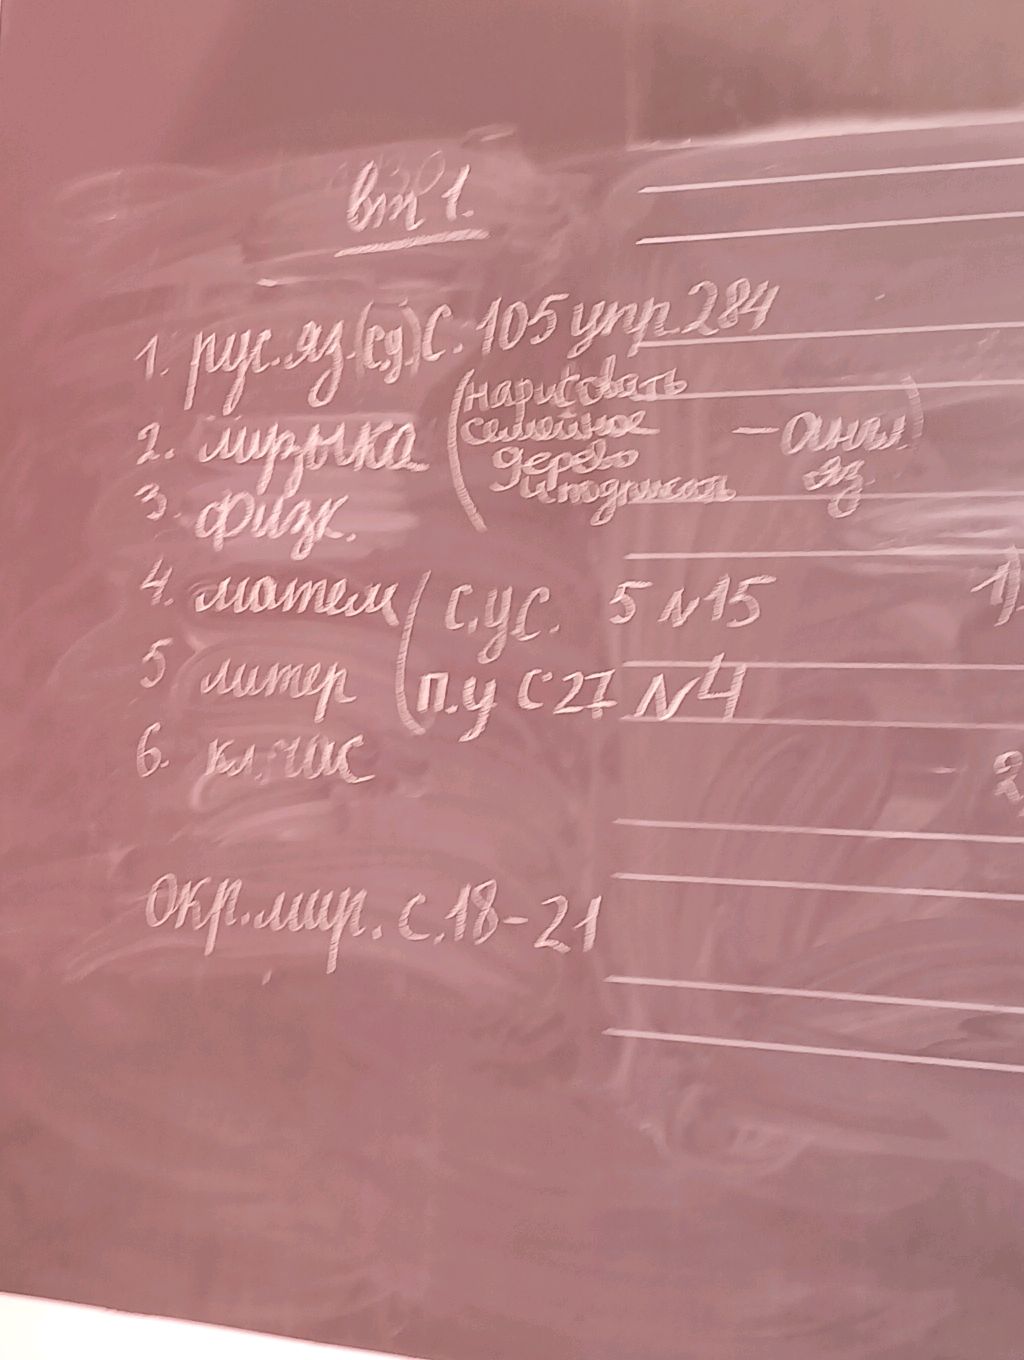 вт 1.
1. рус.яз. С. 105 упр 284
2. музыка (нарисовать
семейное
дерево
и подписать - англ яз)
3. физк.
4. матем ( С.У С. 5 №15
5 литер ( П.У С 27 №4
6. кл. час
1)
2
Окр.мир. С. 18-21